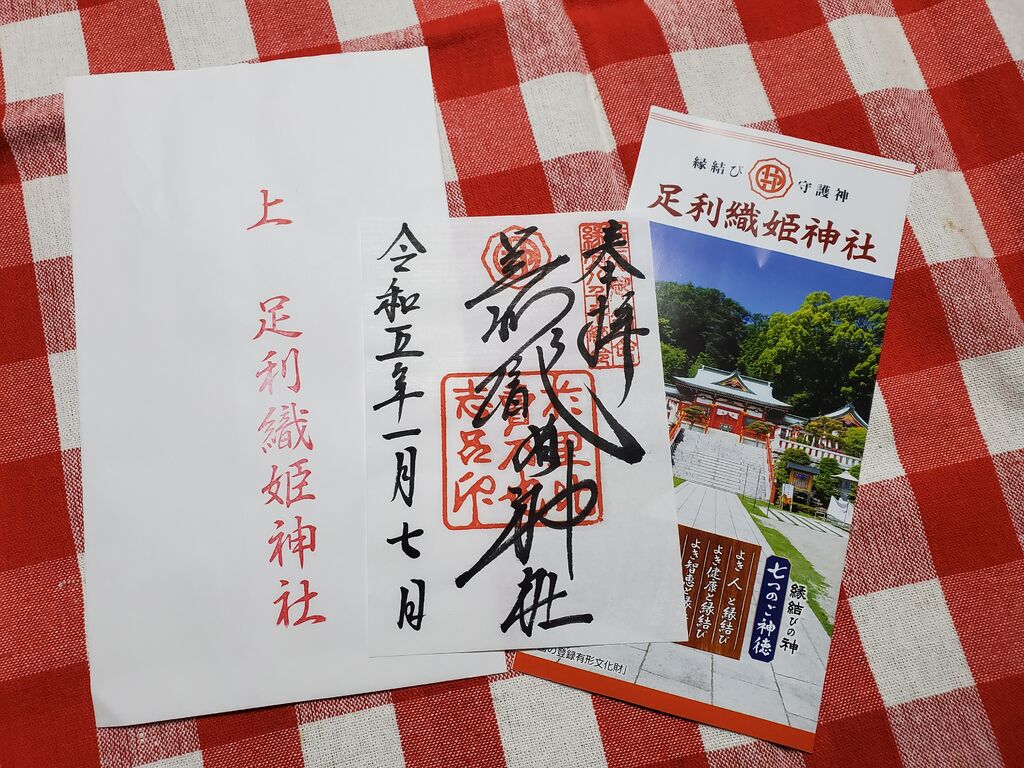 上
足利織姫神社
奉拝
足利織姫神社
令和五年一月七日
縁結び 守護神
足利織姫神社
縁結びの神
七つのご神徳
よき 人 と縁結び
よき健康と縁結び
よき智恵と縁
の登録有形文化財」